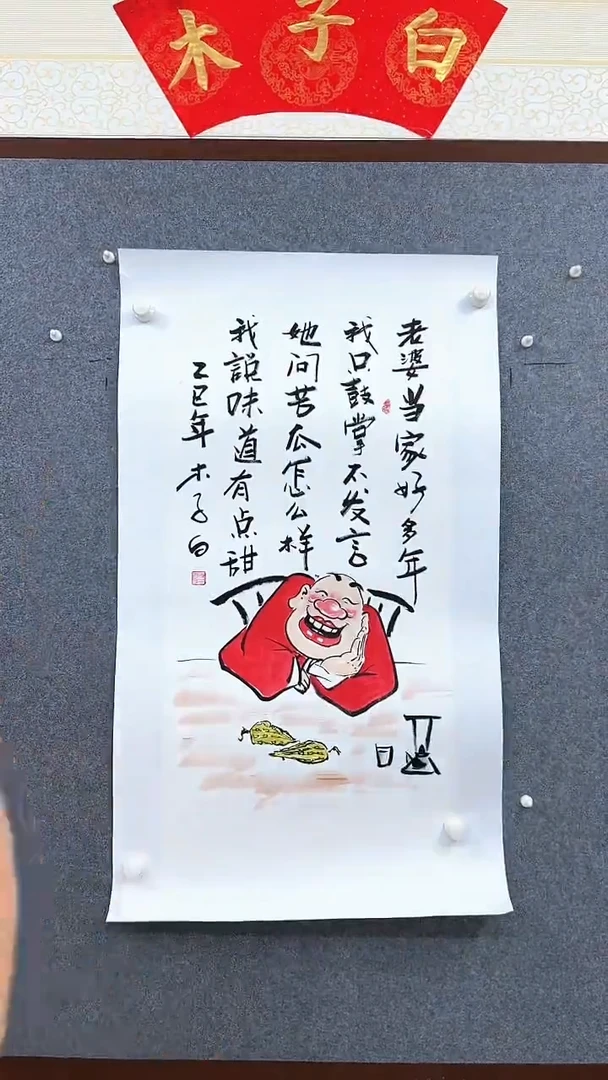 木子白
老婆当家好多年
我只鼓掌不发言
她问苦瓜怎么样
我説味道有点甜
乙巳年木子白